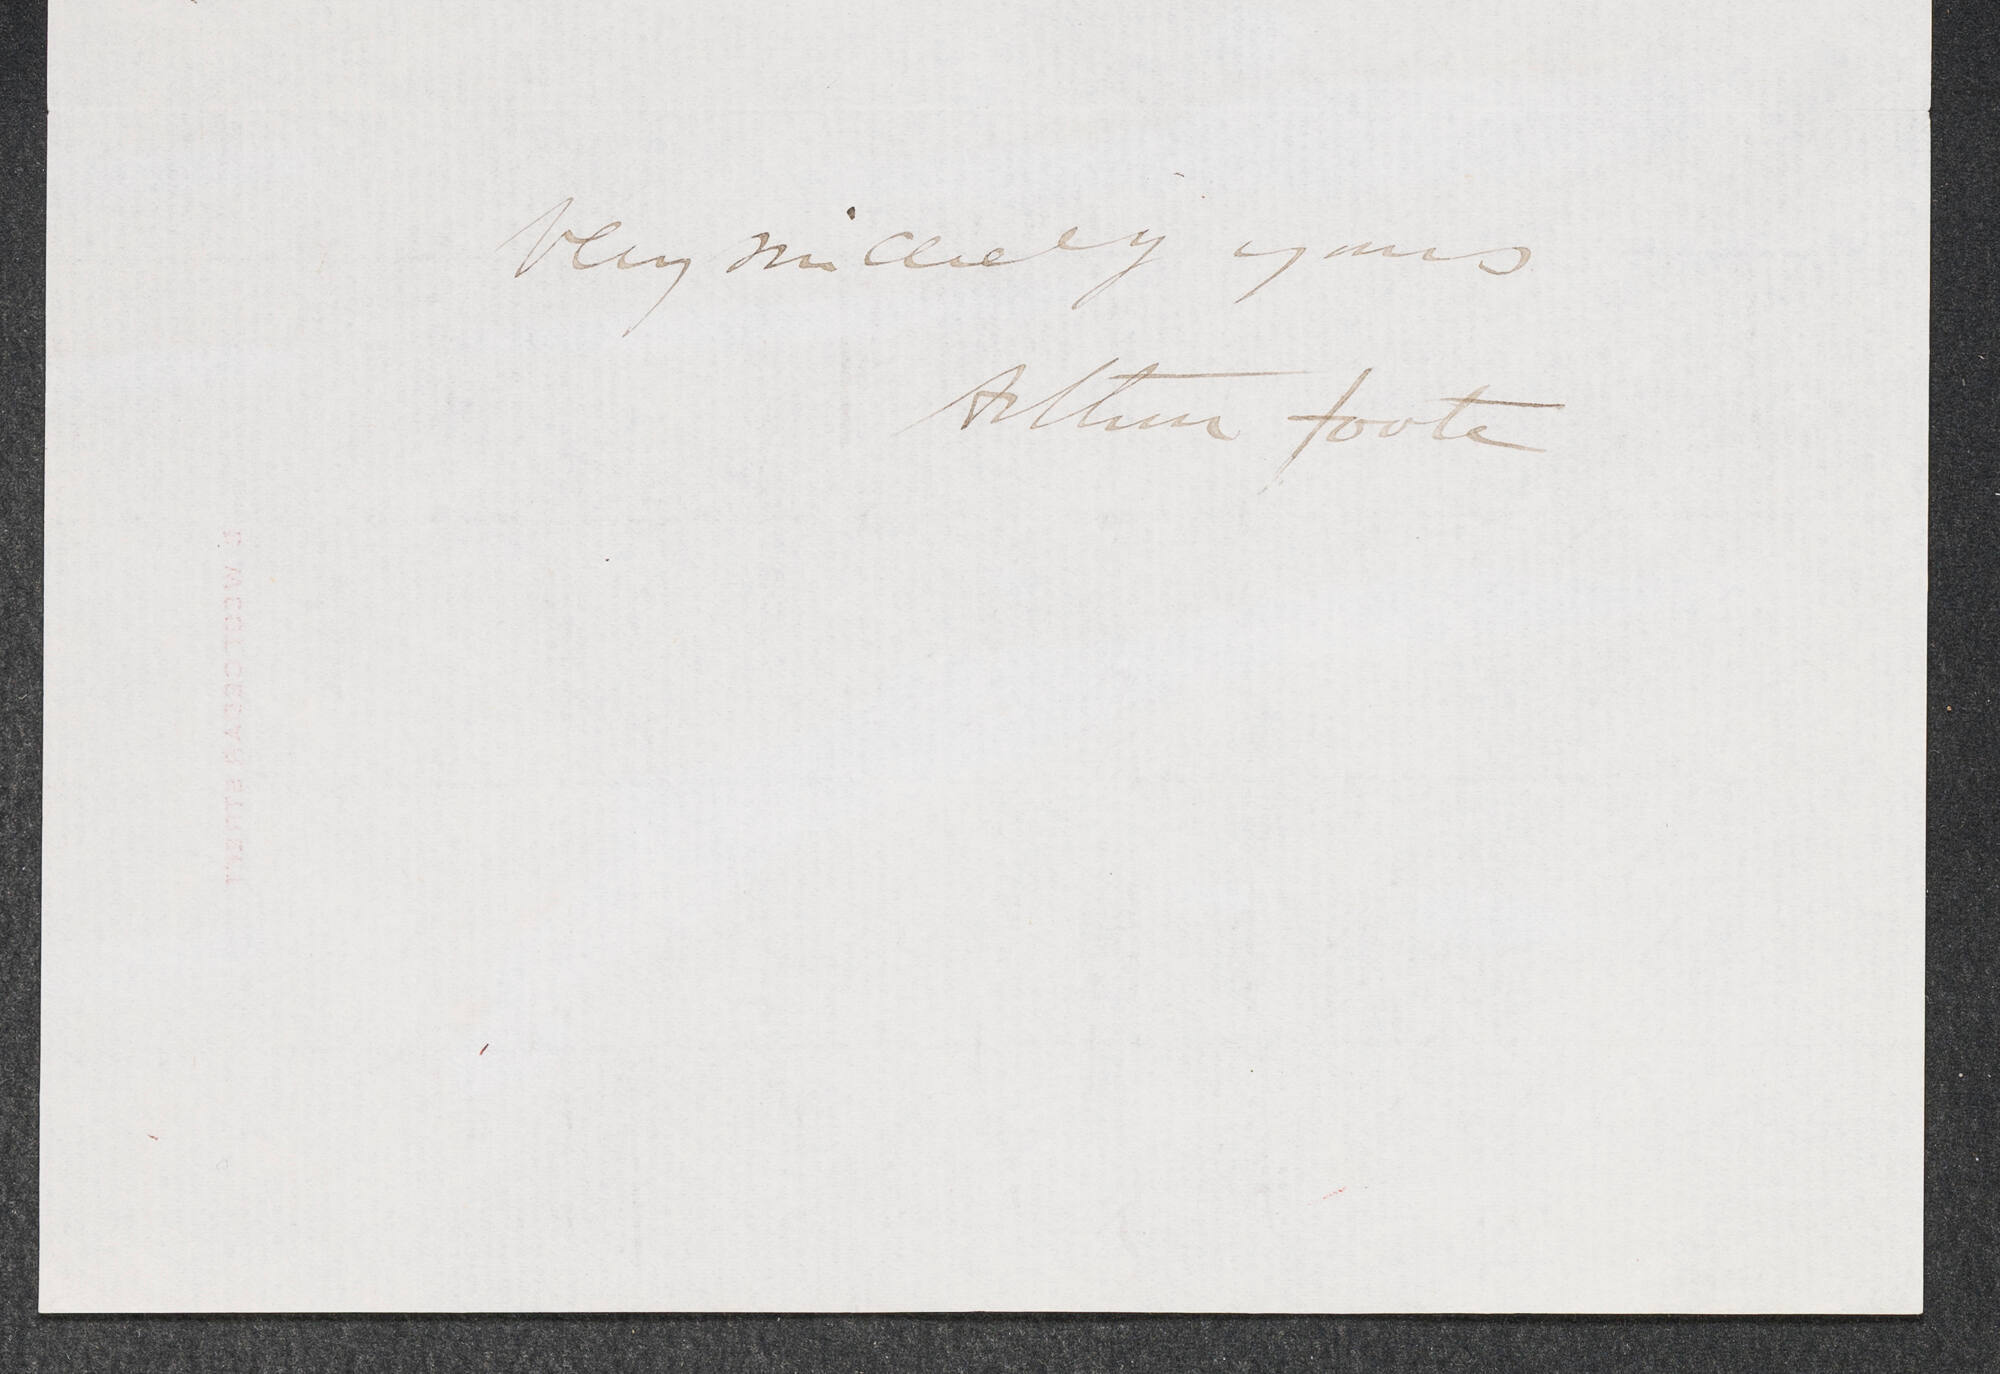 Very sincerely yours
Arthur Foote